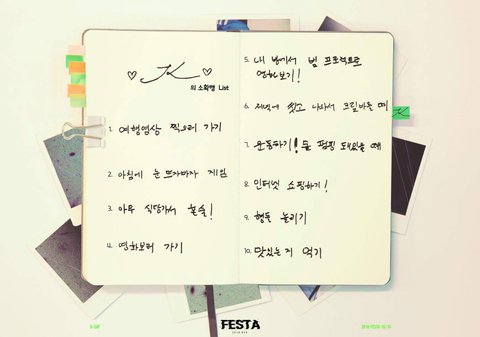 JK
의 소확행 List
1. 여행영상 찍으러 가기
2. 아침에 눈 뜨자마자 게임
3. 아무 식당가서 혼술!
4. 영화보러 가기
5. 내 방에서 빔 프로젝트로
영화보기!
6. 저녁에 씻고 나와서 크림바를 때
7. 운동하기! 몸 펌핑 돼있을 때
8. 인터넷 쇼핑하기!
9. 행동 놀리기
10. 맛있는 거 먹기
FESTA